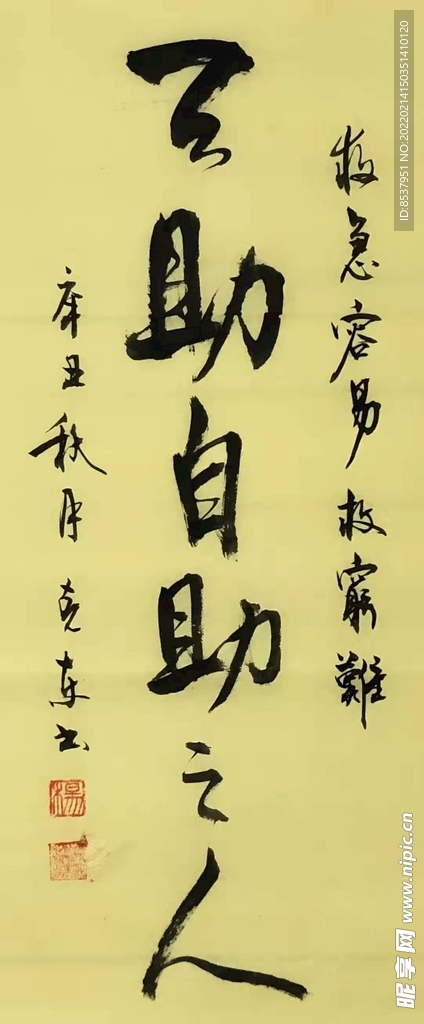 救急容易救窮難
天助自助之人
辛丑秋月克东书
楊
ID:8537951 NO:20220214150351410120
昵享网 www.nipic.cn